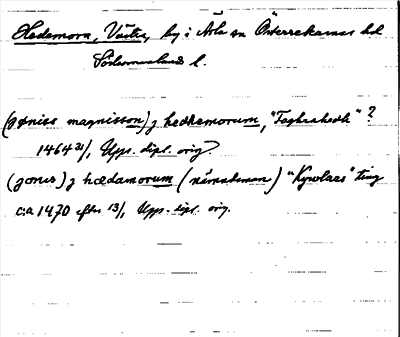 Hedemora, Västra, by i Arla sn Österrekarnes hd
Södermanlands l.
(jøniss magnisson) j hedhemorum, "Foghrahedh" ?
1464 31/1, Upps. dipl. orig.
(jonis) j hædamorum (nämndeman) "Kynlaas" ting
c:a 1470 efter 13/1, Upps. dipl. orig.